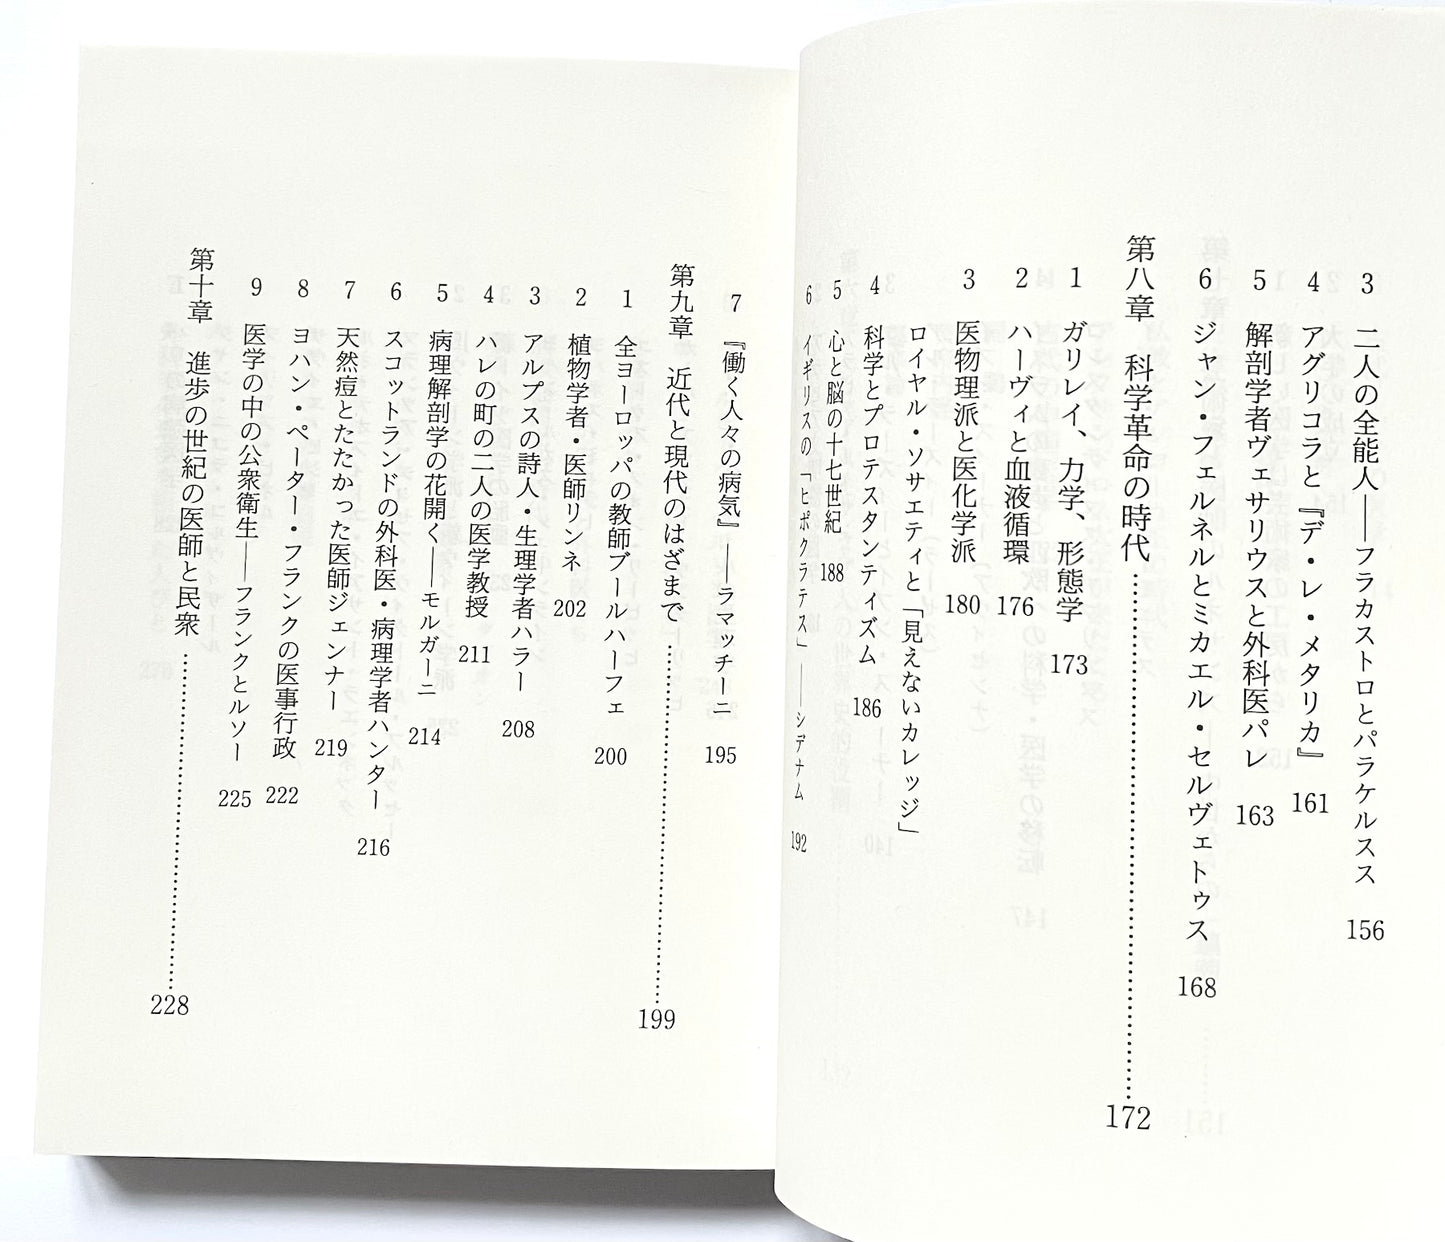 3 二人の全能人――フラカストロとパラケルスス 156
4 アグリコラと『デ・レ・メタリカ』 161
5 解剖学者ヴェサリウスと外科医パレ 163
6 ジャン・フェルネルとミカエル・セルヴェトゥス 168
第八章 科学革命の時代 172
1 ガリレイ、力学、形態学 173
2 ハーヴィと血液循環 176
3 医物理派と医化学派 180
ロイヤル・ソサエティと「見えないカレッジ」
4 科学とプロテスタンティズム 186
5 心と脳の十七世紀 188
6 イギリスの「ヒポクラテス」――シデナム 192
7 『働く人々の病気』――ラマッチーニ 195
第九章 近代と現代のはざまで 199
1 全ヨーロッパの教師ブールハーフェ 200
2 植物学者・医師リンネ 202
3 アルプスの詩人・生理学者ハラー 208
4 ハレの町の二人の医学教授 211
5 病理解剖学の花開く――モルガーニ 214
6 スコットランドの外科医・病理学者ハンター 216
7 天然痘とたたかった医師ジェンナー 219
8 ヨハン・ペーター・フランクの医事行政 222
9 医学の中の公衆衛生――フランクとルソー 225
第十章 進歩の世紀の医師と民衆 228